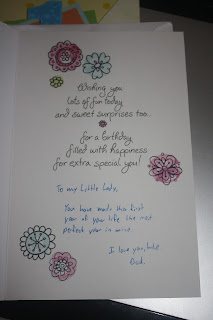 Wishing you
lots of fun today
and sweet surprises too...
for a birthday
filled with happiness
for extra special you!
To my Little Lady,
You have made this first
year of your life the most
perfect year in mine.
I love you, babe
Dad.